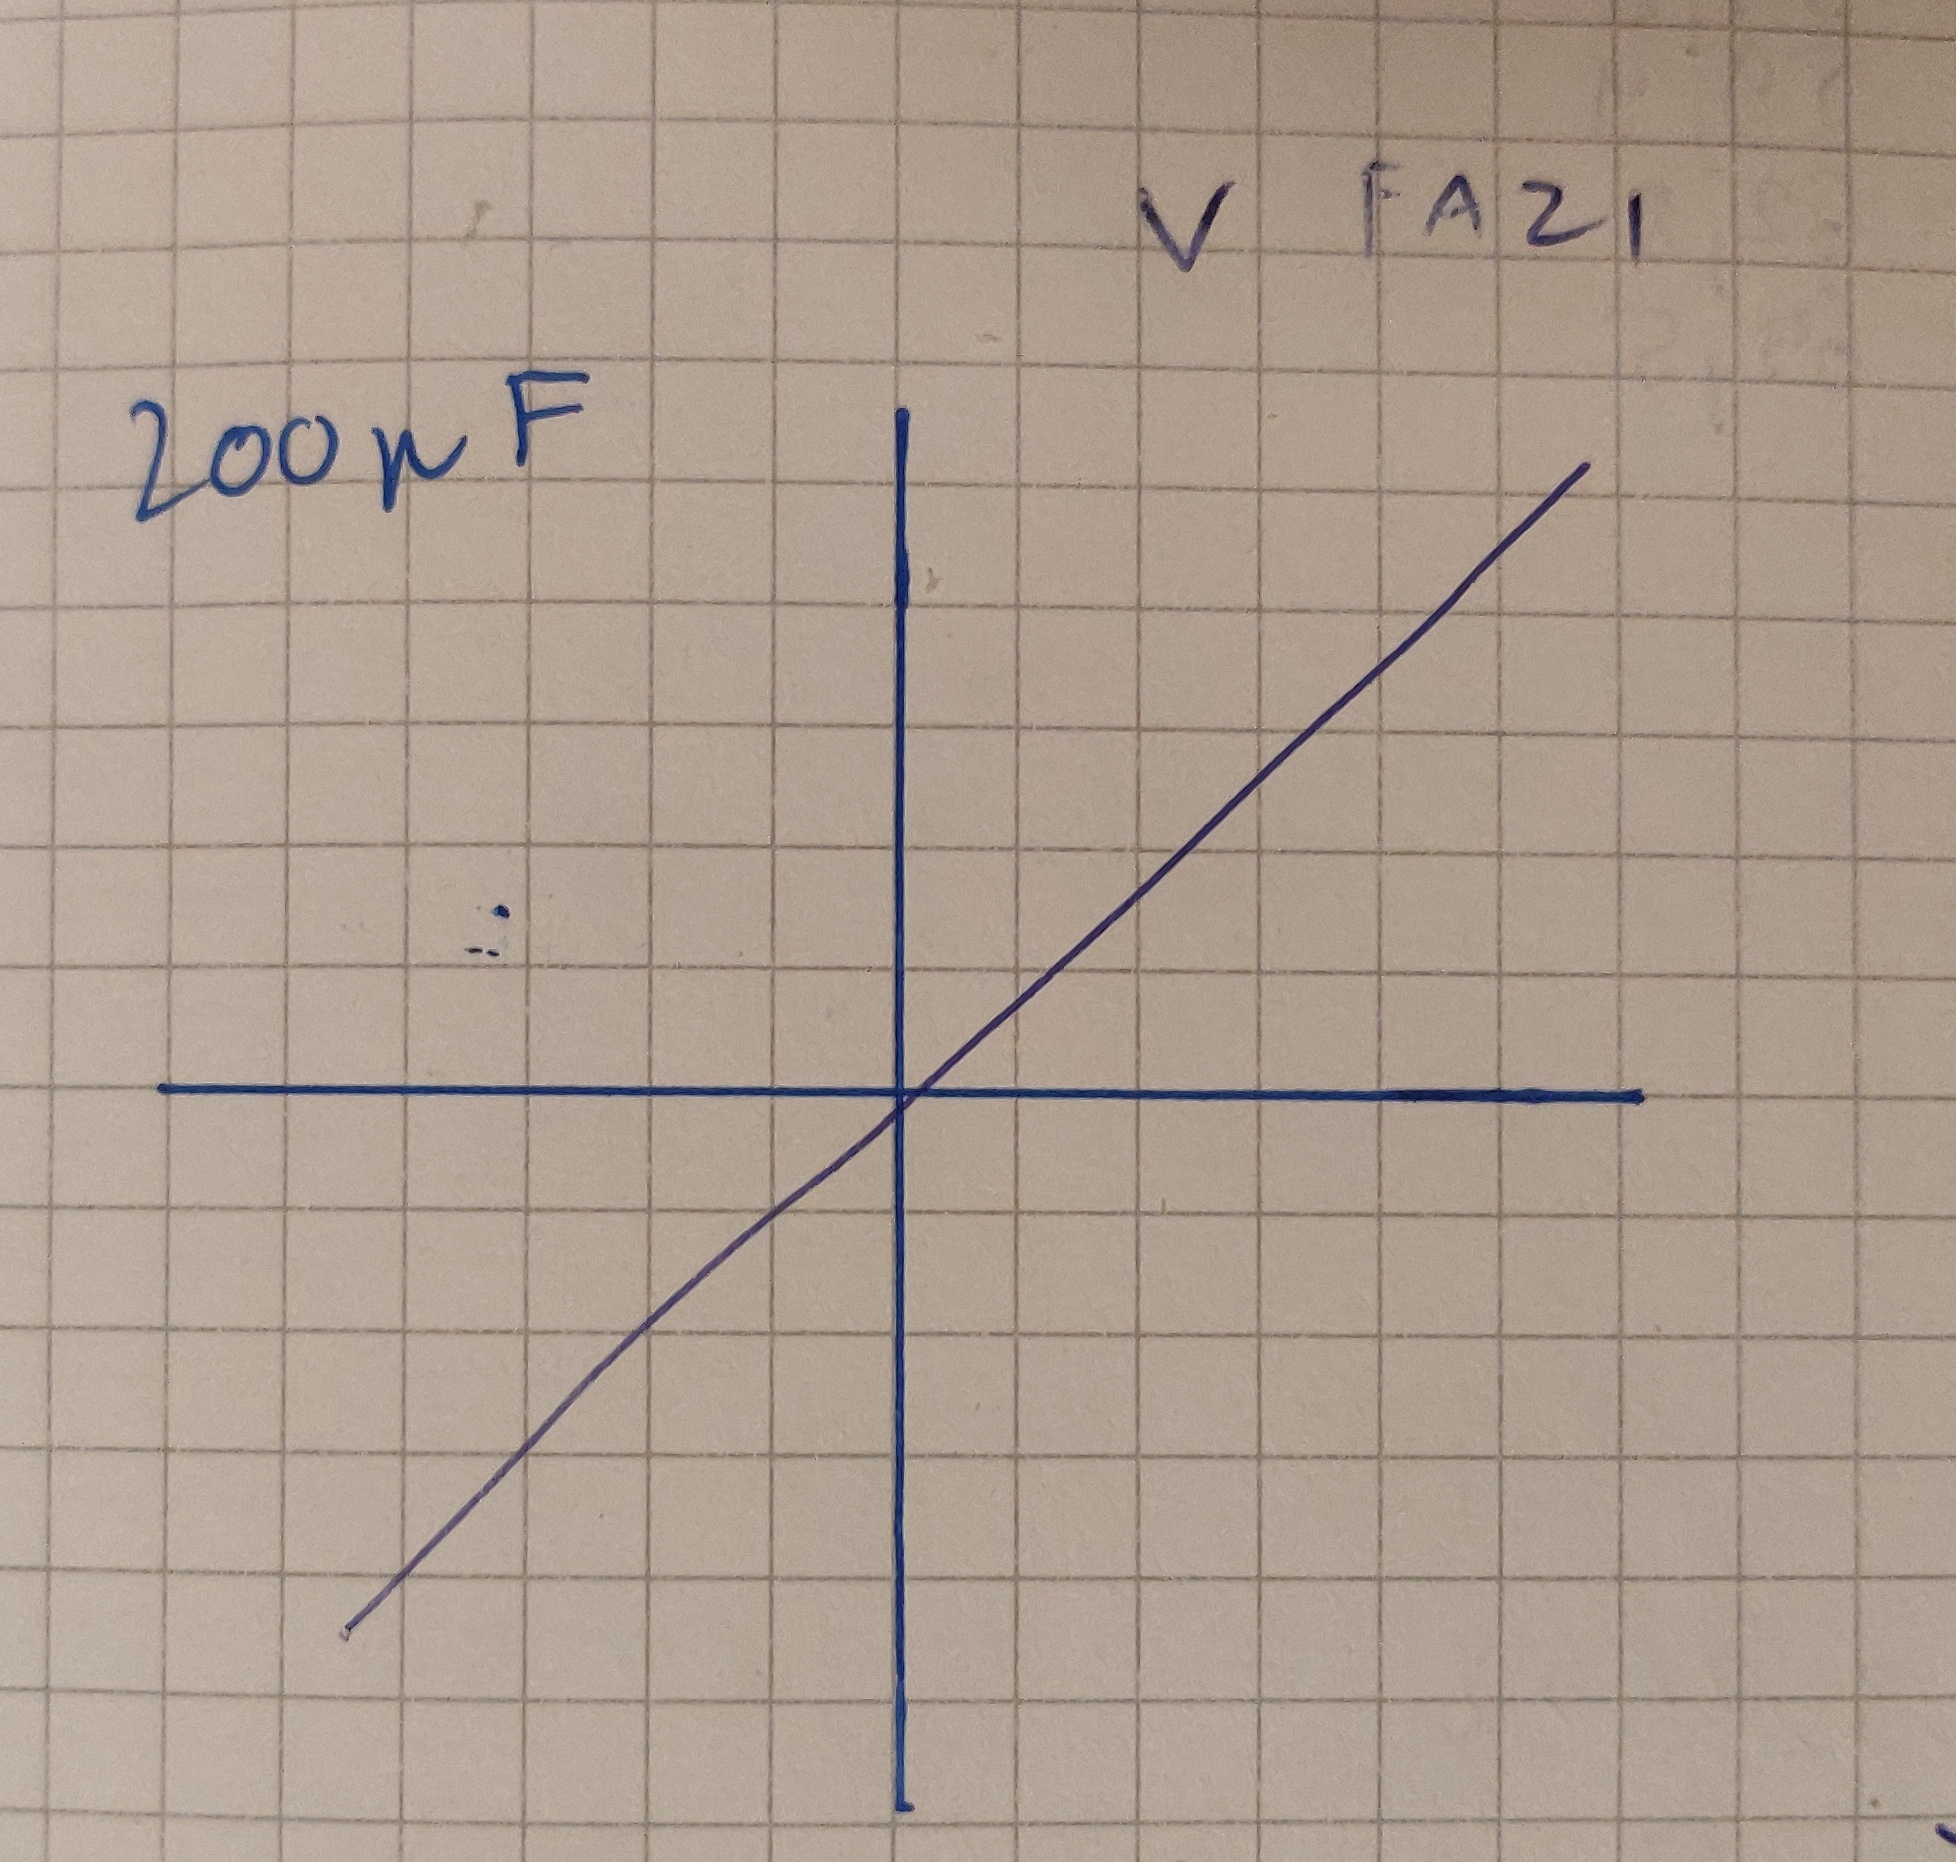 V FAZI
200μF